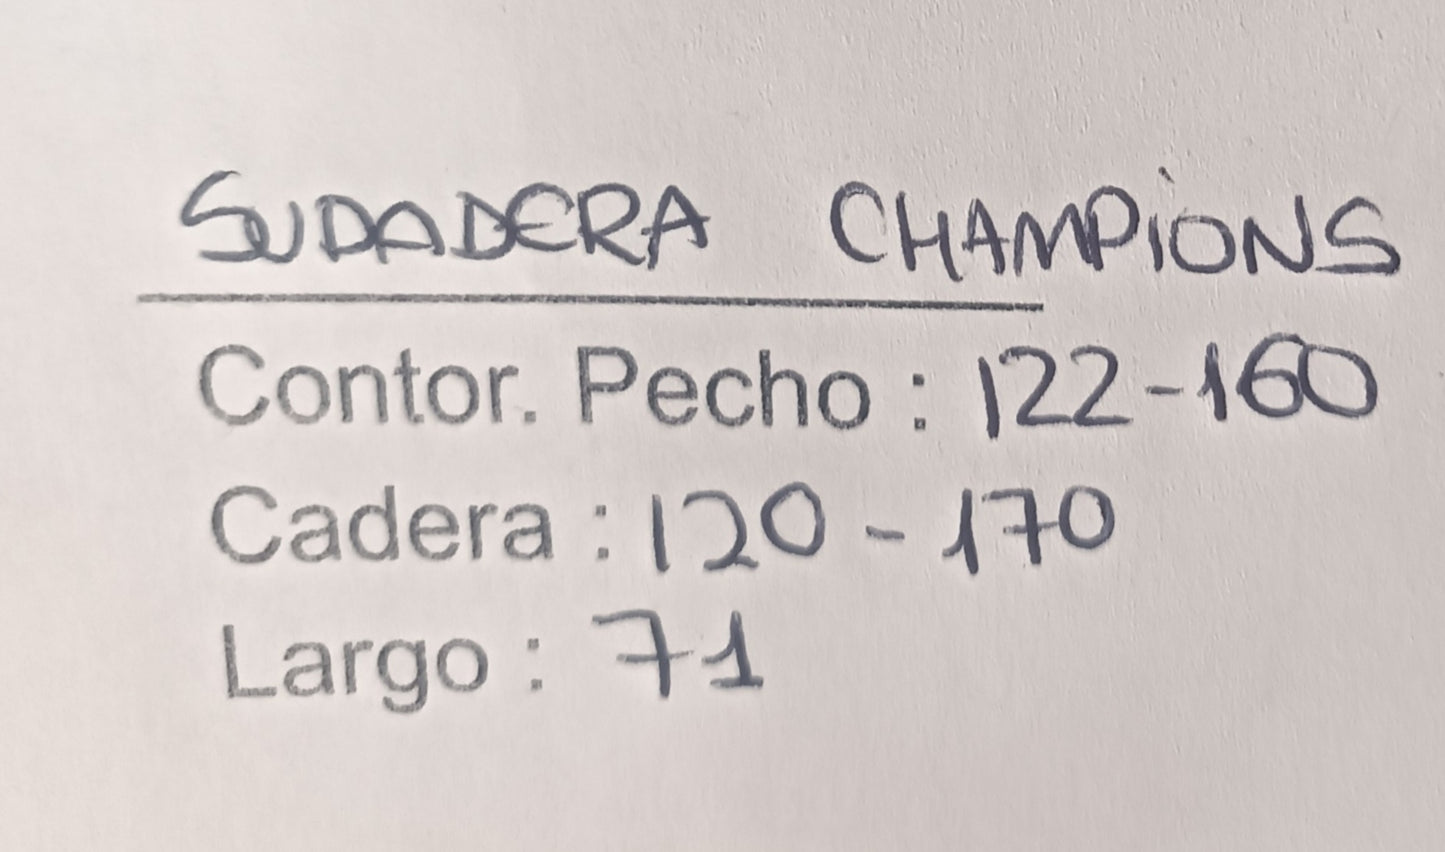 SUDADERA CHAMPiONS
Contor. Pecho : 122-160
Cadera : 120 - 170
Largo : 71